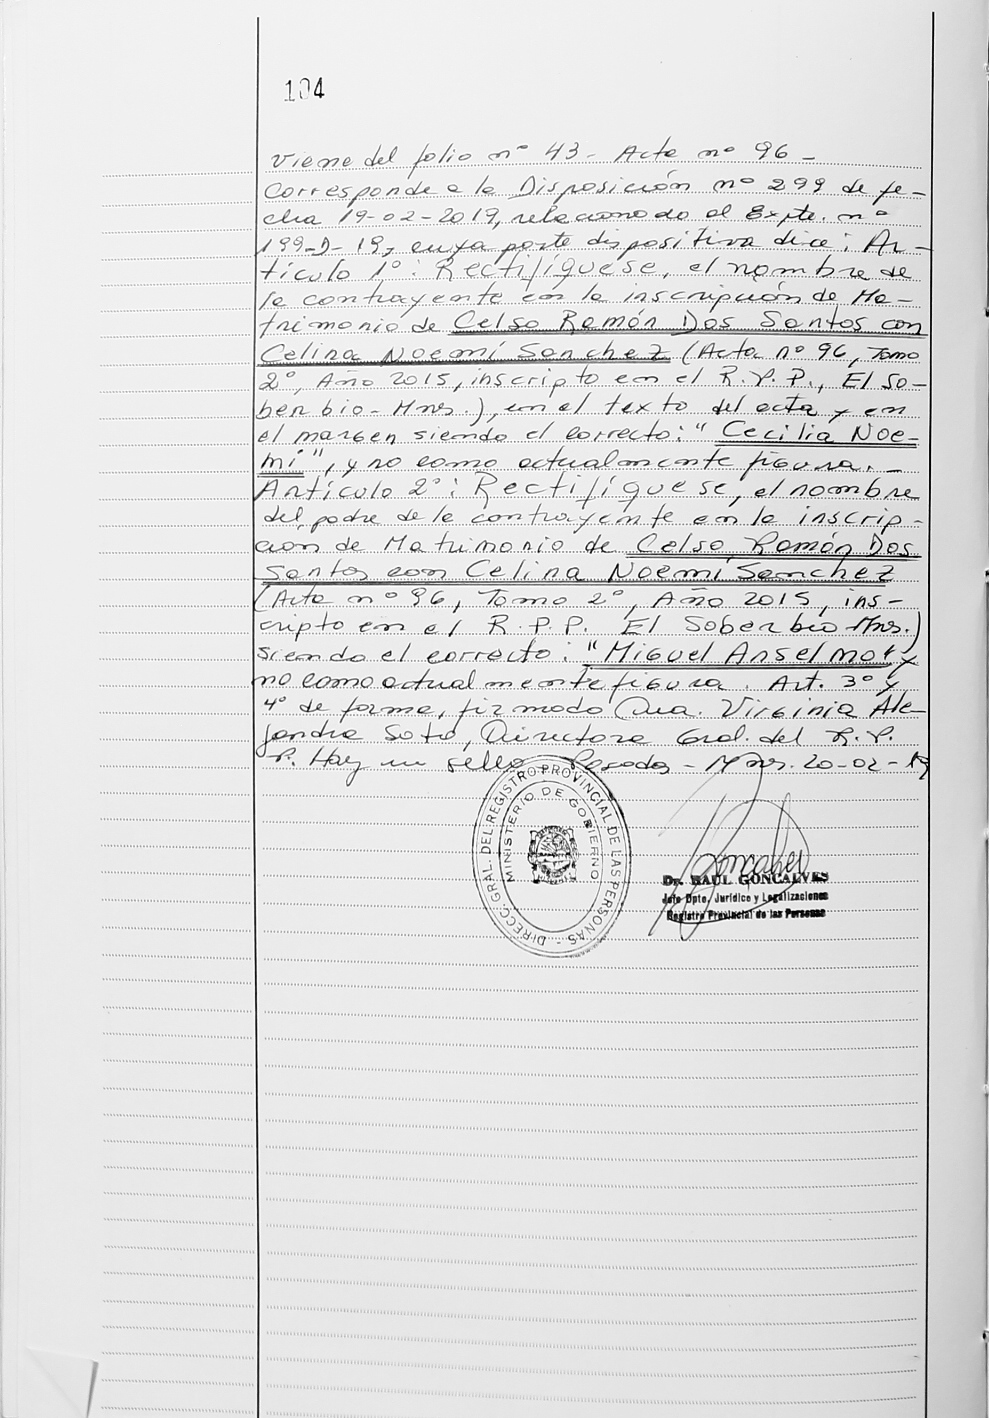 104
Viene del folio nº 43 - Acta nº 96 -
Corresponde a la Disposición nº 299 de fe-
cha 19-02-2019, relacionado al Expte. nº
199-D-19, cuya parte dispositiva dice: Ar-
tículo 1º: Rectifíquese, el nombre de
la contrayente en la inscripción de Ma-
trimonio de Celso Ramón Dos Santos con
Celina Noemí Sanchez (Acta nº 96, Tomo
2º, Año 2015, inscripto en el R.P.P., El So-
berbio - Mnes.), en el texto del acta y en
el margen siendo el correcto: "Cecilia Noe-
mí", y no como actualmente figura. -
Artículo 2º: Rectifíquese, el nombre
del padre de la contrayente en la inscrip-
cion de Matrimonio de Celso Ramón Dos
Santos con Celina Noemí Sanchez
(Acta nº 96, Tomo 2º, Año 2015, ins-
cripto en el R.P.P. El Soberbio Mnes.)
siendo el correcto: "Miguel Anselmo" y
no como actualmente figura. Art. 3º y
4º de forma, firmado Dra. Virginia Ale-
jandra Soto, Directora Gral. del R.P.
P. Hay un sello. Posadas - Mnes. 20-02-19
DIRECC. GRAL. DEL REGISTRO PROVINCIAL DE LAS PERSONAS -
MINISTERIO DE GOBIERNO
Dr. RAUL GONCALVES
Jefe Dpto. Jurídico y Legalizaciones
Registro Provincial de las Personas